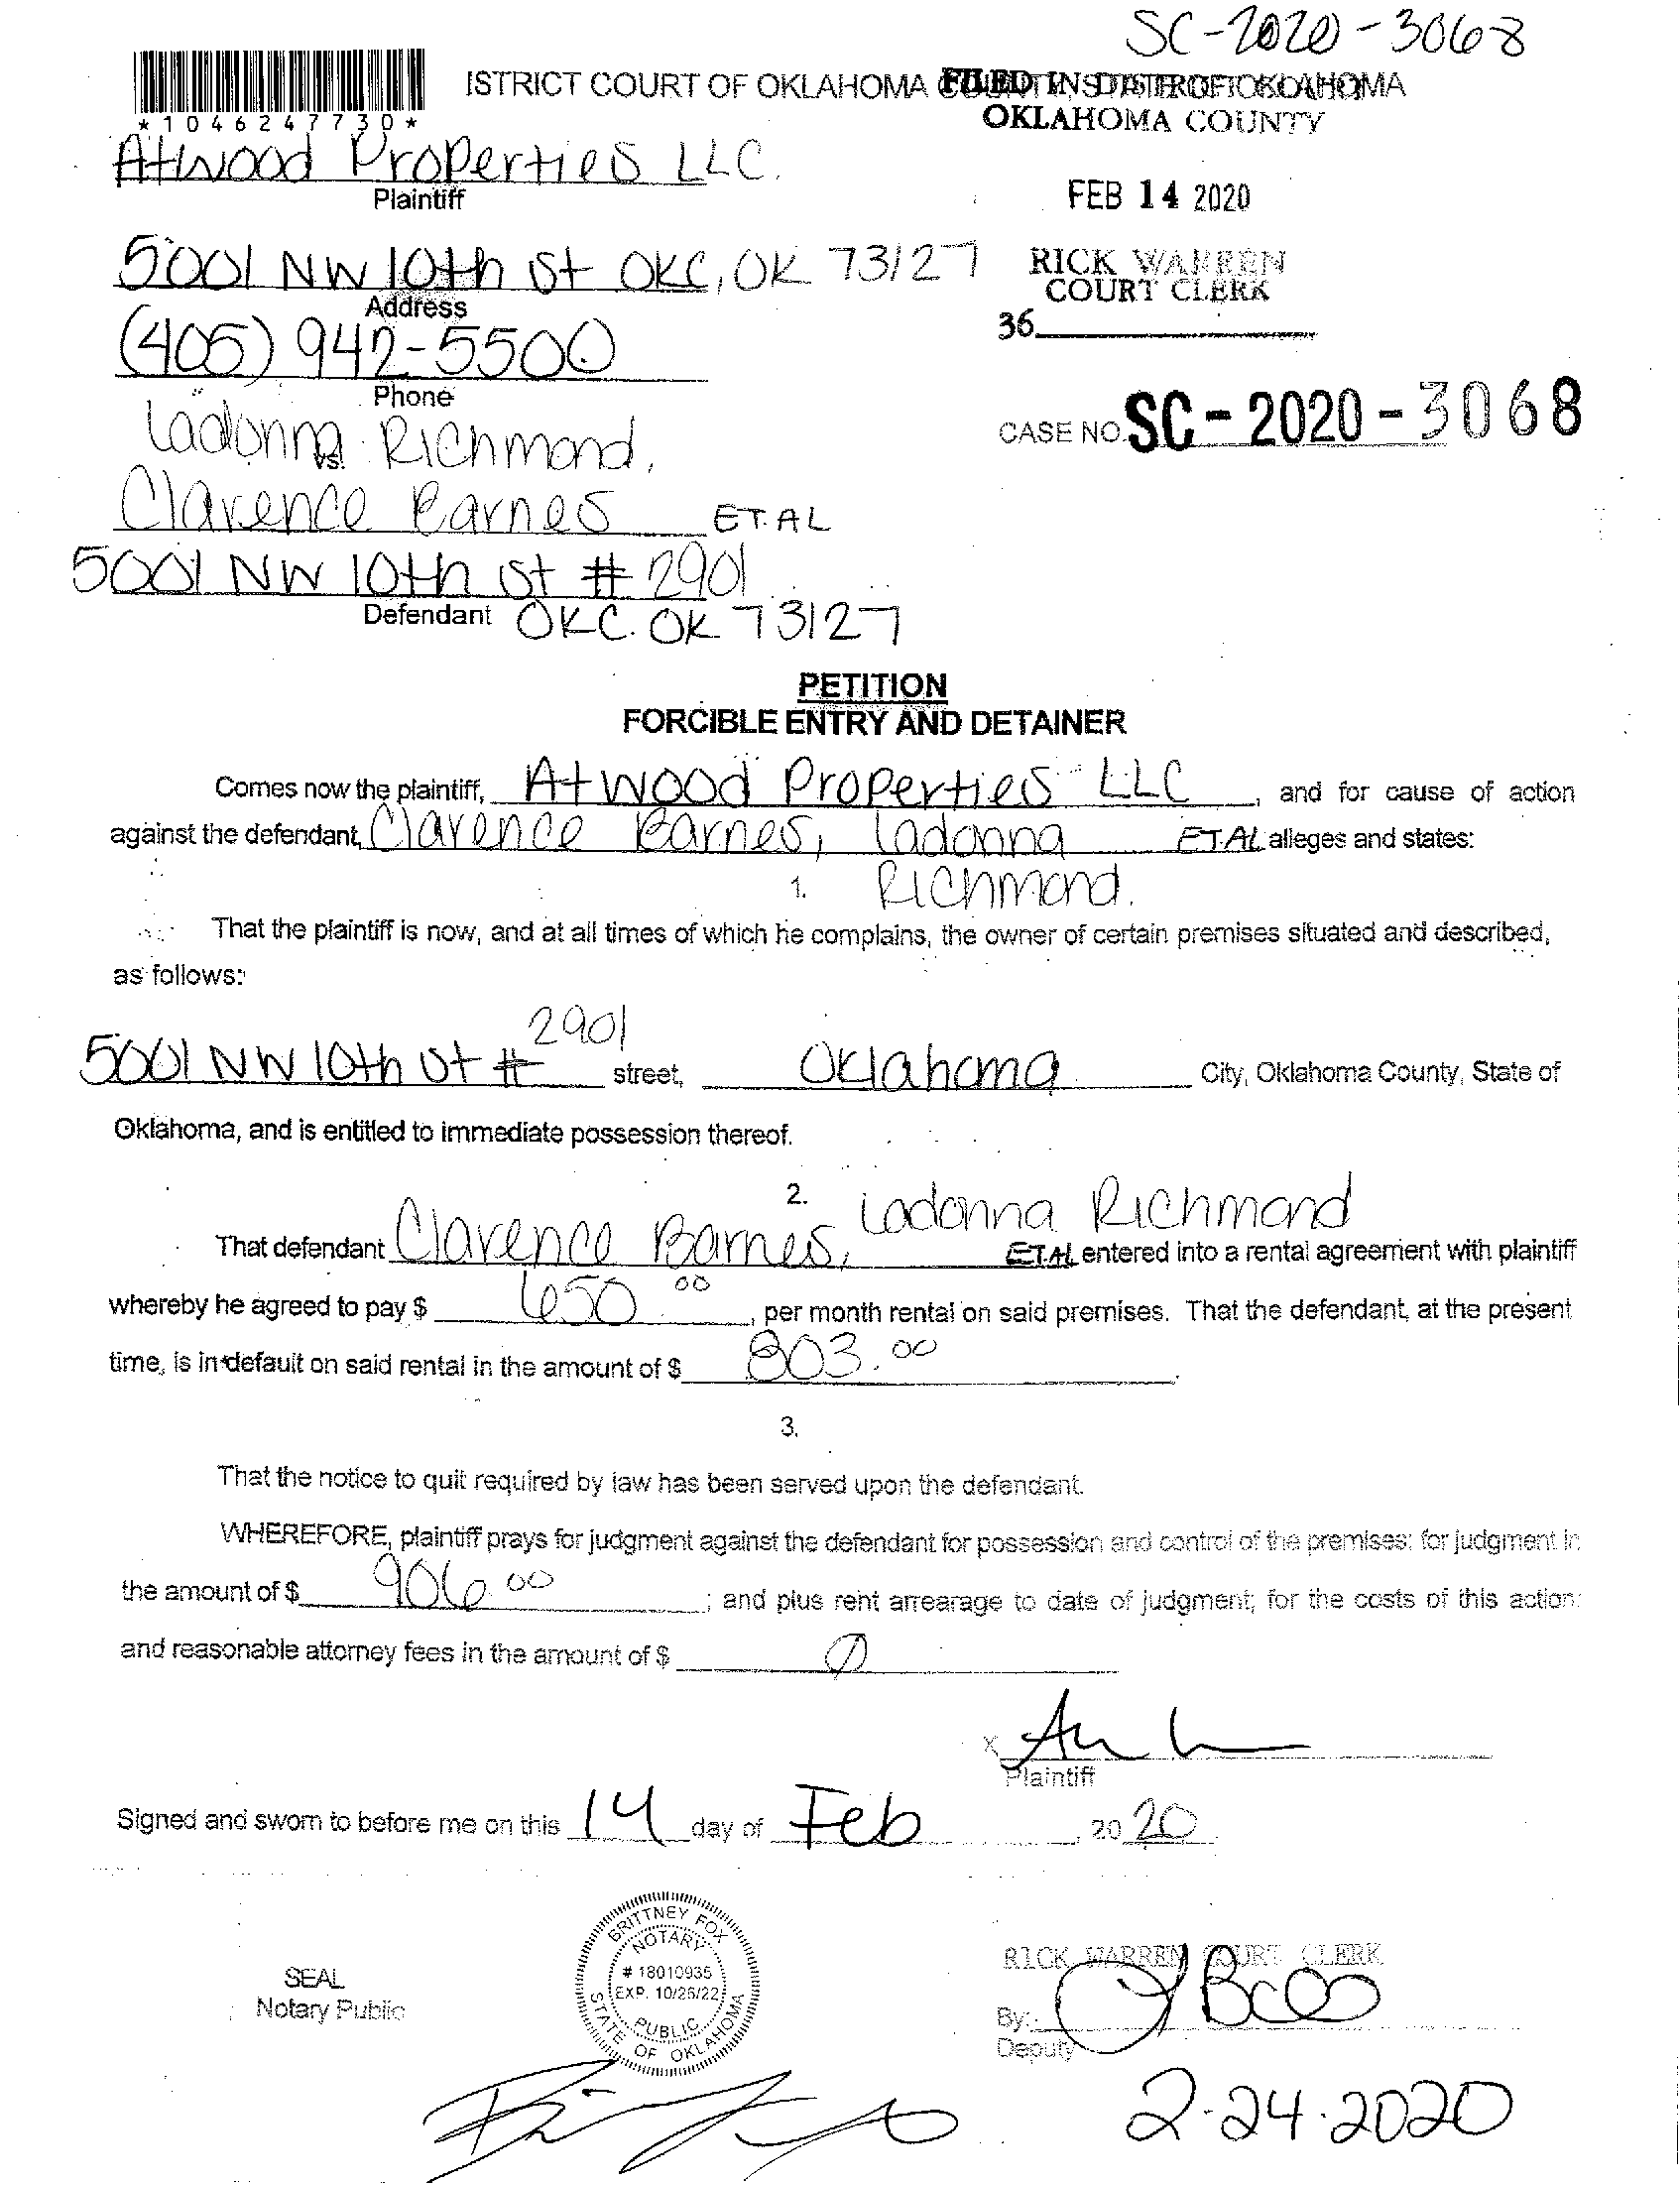 SC-2020-3068
ISTRICT COURT OF OKLAHOMA COUNTY, STATE OF OKLAHOMA
FILED IN DISTRICT COURT
OKLAHOMA COUNTY
*1046247730*
Atwood Properties LLC.
Plaintiff
FEB 14 2020
5001 NW 10th St OKC, OK 73127
Address
RICK WARREN
COURT CLERK
36
(405) 942-5500
Phone
CASE NO. SC-2020-3068
Ladonna Richmond,
vs.
Clarence Barnes ET. AL
5001 NW 10th St # 2901
Defendant OKC. OK 73127
PETITION
FORCIBLE ENTRY AND DETAINER
Comes now the plaintiff, Atwood Properties LLC, and for cause of action
against the defendant, Clarence Barnes, Ladonna ET.AL alleges and states:
1. Richmond.
That the plaintiff is now, and at all times of which he complains, the owner of certain premises situated and described,
as follows:
2901
5001 NW 10th St # street, Oklahoma City, Oklahoma County, State of
Oklahoma, and is entitled to immediate possession thereof.
2. Ladonna Richmond
That defendant Clarence Barnes, ET.AL entered into a rental agreement with plaintiff
whereby he agreed to pay $ 650.00, per month rental on said premises. That the defendant, at the present
time, is in default on said rental in the amount of $ 803.00.
3.
That the notice to quit required by law has been served upon the defendant.
WHEREFORE, plaintiff prays for judgment against the defendant for possession and control of the premises; for judgment in
the amount of $ 906.00; and plus rent arrearage to date of judgment; for the costs of this action;
and reasonable attorney fees in the amount of $ 0
X
Plaintiff
Signed and sworn to before me on this 14 day of Feb, 2020.
BRITTNEY FOX
NOTARY
# 18010935
EXP. 10/26/22
PUBLIC
STATE OF OKLAHOMA
SEAL
Notary Public
RICK WARREN COURT CLERK
By:
Deputy
2-24-2020